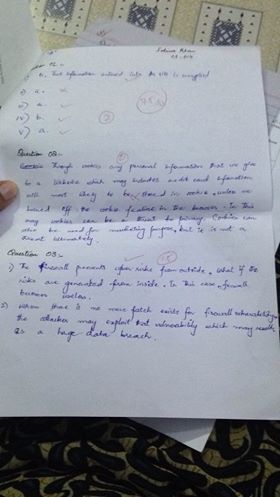 Question 01:-
i) b. The information entered into the site is encrypted
ii) a.
iii) a.
iv) b.
v) a.
7.5
2
Question 02:-
Though cookies any personal information that we give
to a website which may includes credit card information
will most likely to be stored in cookie, unless we
turned off the cookie feature in the browser. In this
way cookies can be a threat to privacy. Cookies can
also be used for marketing purpose, but it is not a
threat ultimately.
Question 03:-
1.5
1) The firewall prevents upon risks from outside. What if the
risks are generated from inside. In this case, firewall
becomes useless.
2) When there is no more patch exists for firewall vulnerability
the attacker may exploit that vulnerability which may results
as a huge data breach.